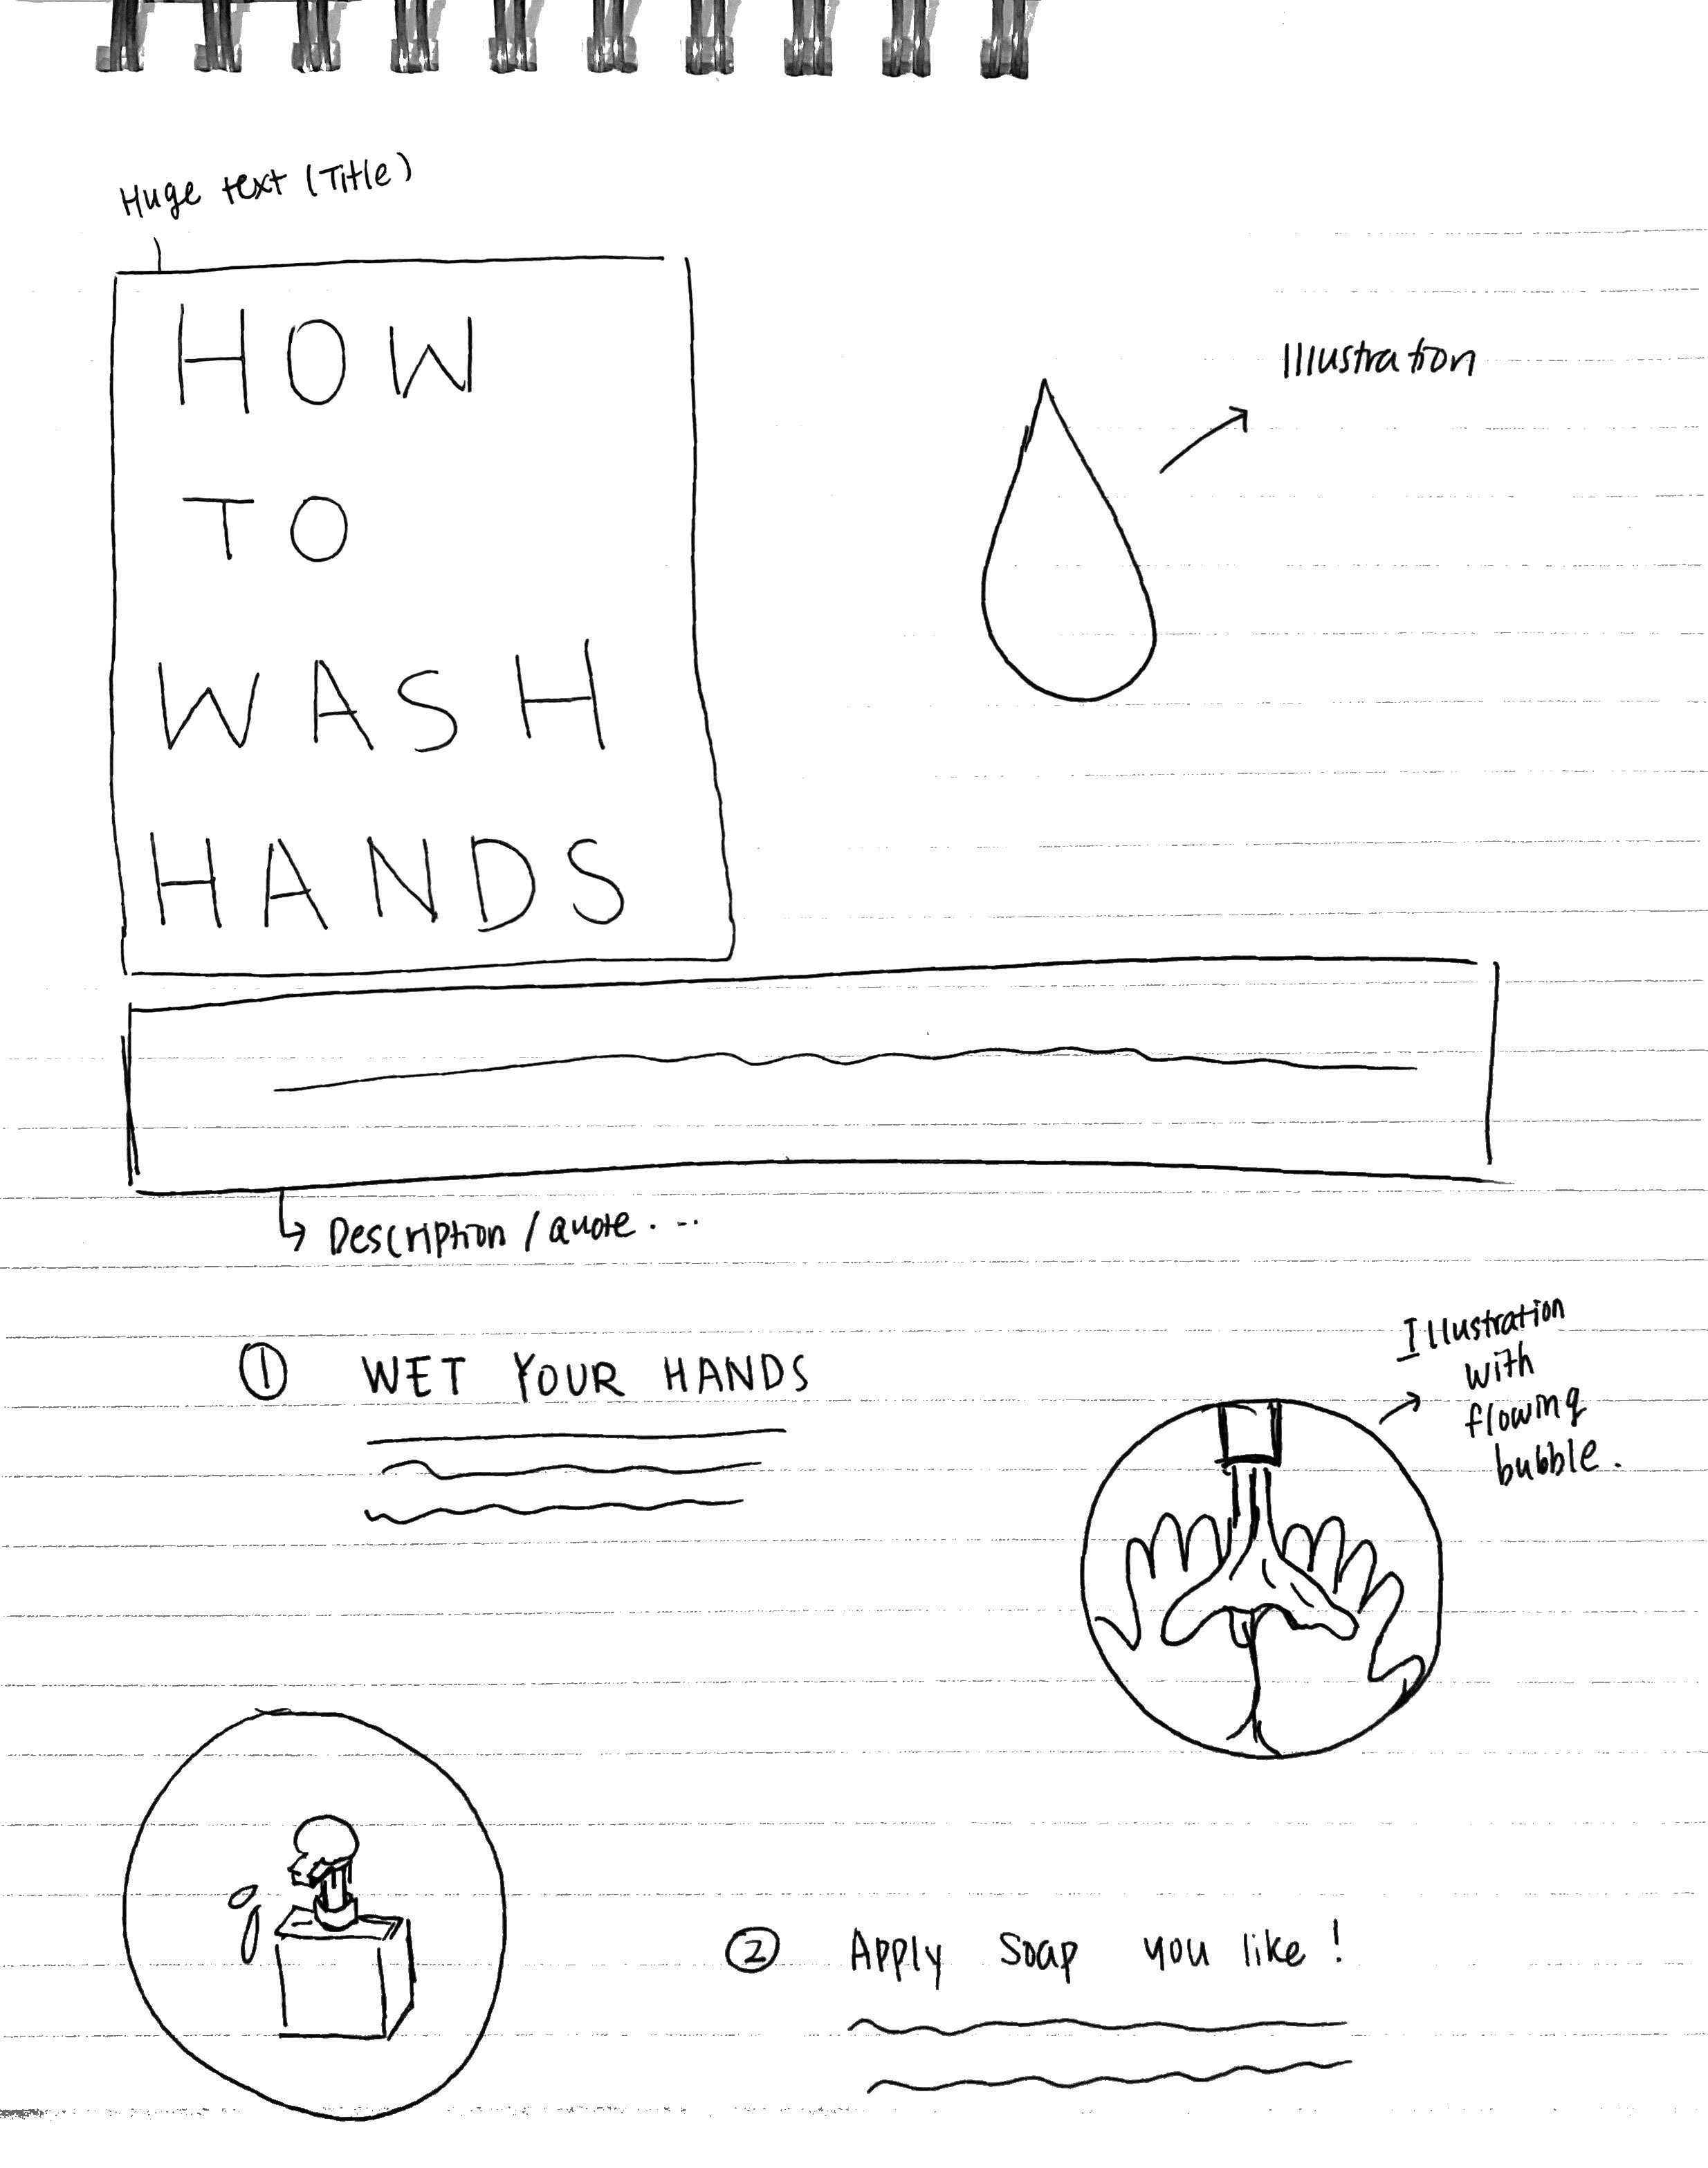 Huge text (Title)
HOW
TO
WASH
HANDS
Illustration
Description / quote . . .
1 WET YOUR HANDS
Illustration
with
flowing
bubble.
2 Apply Soap you like!